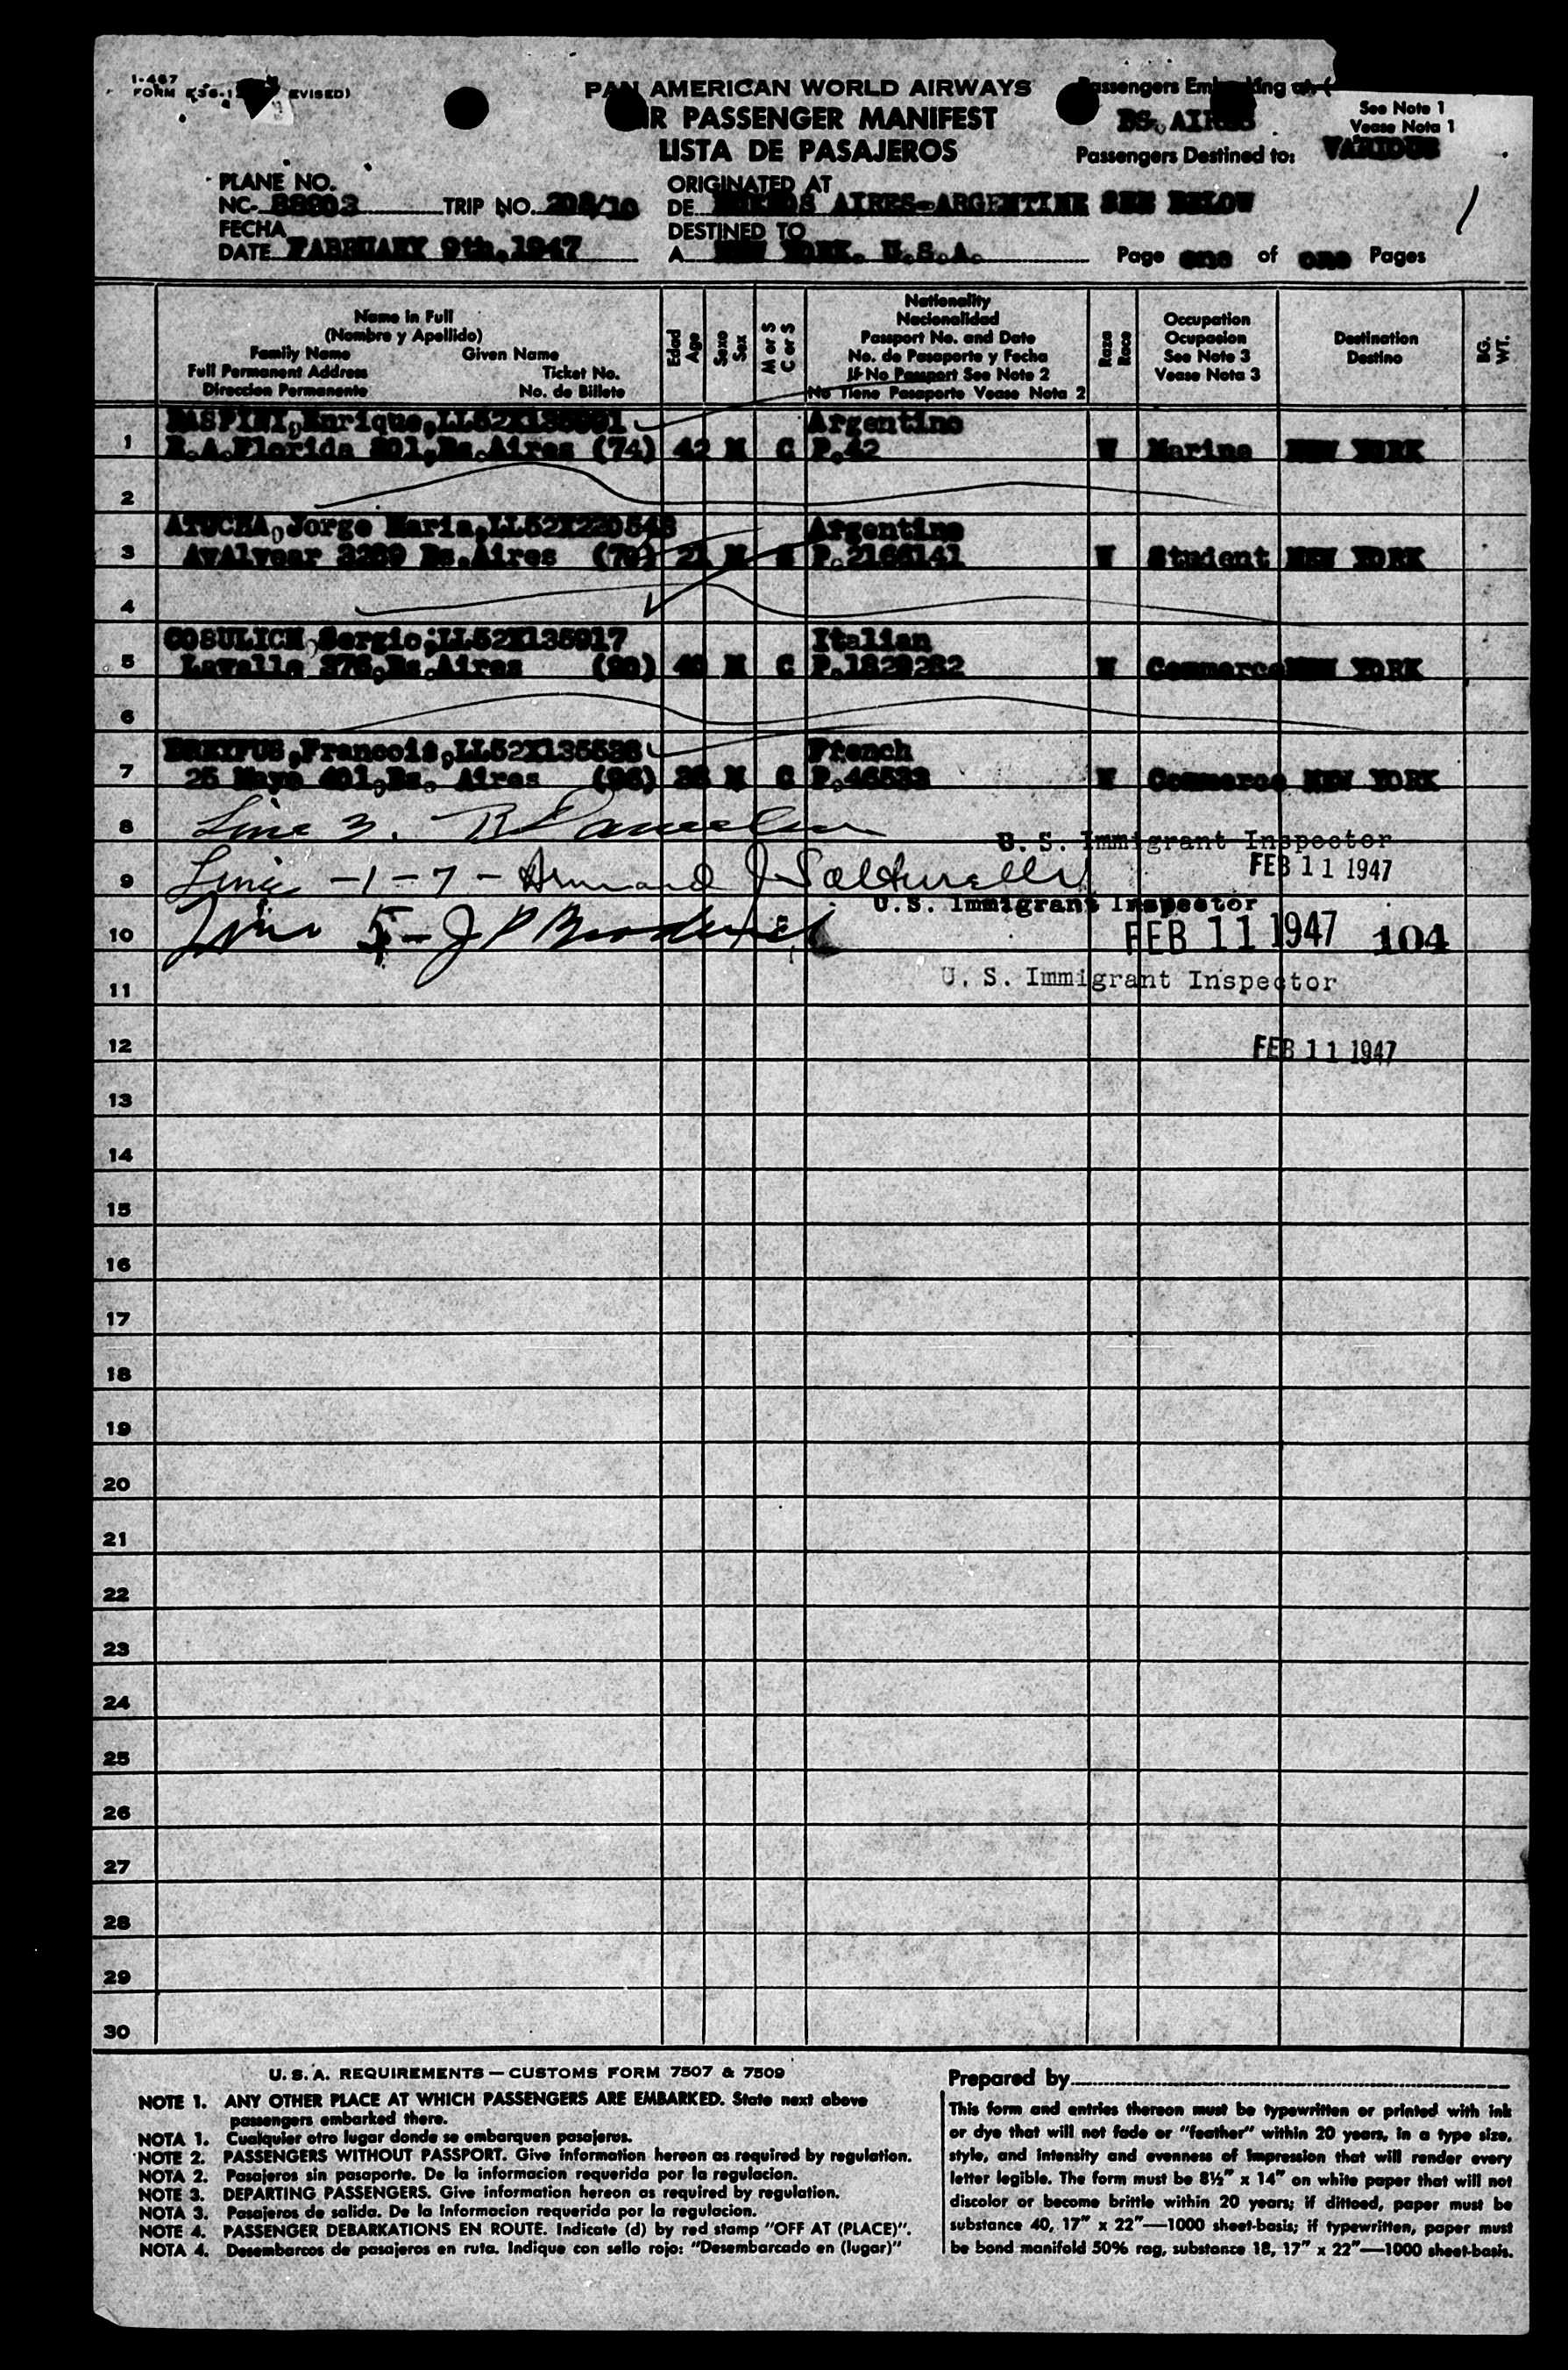 I-467
FORM
EVISED)
PAN AMERICAN WORLD AIRWAYS
R PASSENGER MANIFEST
LISTA DE PASAJEROS
BS. AIRES
See Note 1
Vease Nota 1
Passengers Destined to: VARIOUS
PLANE NO.
NC- 88903 TRIP NO. 208/10
FECHA
DATE FABRUARY 9th.1947
ORIGINATED AT
DE BUENOS AIRES-ARGENTINE SEE BELOW
DESTINED TO
A NEW YORK. U.S.A.
Page one of one Pages
Name in Full
(Nombre y Apellido)
Family Name Given Name
Full Permanent Address Ticket No.
Direccion Permanente No. de Billete
Edad
Age
Sexo
Sex
M or S
C or S
Nationality
Nacionalidad
Passport No. and Date
No. de Pasaporte y Fecha
If No Passport See Note 2
No Tiene Pasaporte Vease Nota 2
Raza
Race
Occupation
Ocupacion
See Note 3
Vease Nota 3
Destination
Destino
BG.
WT.
Enrique, Argentino
1 R.A.Florida 801,Bs.Aires (74) 42 M C P.42 W Marine NEW YORK
2
ATUCHA,Jorge Maria,LL52X220548 Argentino
3 AvAlvear 3289 Bs.Aires 21 M S P.2166141 W Student NEW YORK
4
COSULICH,Sergio;LL52X135917 Italian
5 Lavalle 376,Bs.Aires 40 M C P.1829282 W Commerce NEW YORK
6
DREYFUS,Francois,LL52X135536 French
7 25 Mayo 401,Bs. Aires (96) 38 M C P.46533 W Commerce NEW YORK
8 Line 3.
U. S. Immigrant Inspector
FEB 11 1947
9 Line -1-7- Armand J
U.S. Immigrant Inspector
10 Line 5- J P
FEB 11 1947 104
11 U. S. Immigrant Inspector
12 FEB 11 1947
13
14
15
16
17
18
19
20
21
22
23
24
25
26
27
28
29
30
U. S. A. REQUIREMENTS — CUSTOMS FORM 7507 & 7509
NOTE 1. ANY OTHER PLACE AT WHICH PASSENGERS ARE EMBARKED. State next above
passengers embarked there.
NOTA 1. Cualquier otro lugar donde se embarquen pasajeros.
NOTE 2. PASSENGERS WITHOUT PASSPORT. Give information hereon as required by regulation.
NOTA 2. Pasajeros sin pasaporte. De la informacion requerida por la regulacion.
NOTE 3. DEPARTING PASSENGERS. Give information hereon as required by regulation.
NOTA 3. Pasajeros de salida. De la Informacion requerida por la regulacion.
NOTE 4. PASSENGER DEBARKATIONS EN ROUTE. Indicate (d) by red stamp "OFF AT (PLACE)".
NOTA 4. Desembarcos de pasajeros en ruta. Indique con sello rojo: "Desembarcado en (lugar)"
Prepared by
This form and entries thereon must be typewritten or printed with ink
or dye that will not fade or "feather" within 20 years, in a type size,
style, and intensity and evenness of impression that will render every
letter legible. The form must be 8½" x 14" on white paper that will not
discolor or become brittle within 20 years; if dittoed, paper must be
substance 40, 17" x 22"—1000 sheet-basis; if typewritten, paper must
be bond manifold 50% rag, substance 18, 17" x 22"—1000 sheet-basis.